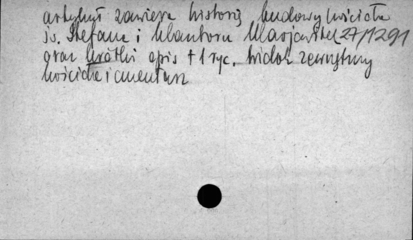 artykuł zawiera historię budowy kościoła
św. Stefana i klasztoru 27/1291
oraz krótki opis + 1 ryc. widok zewnętrzny
kościoła i cmentarz